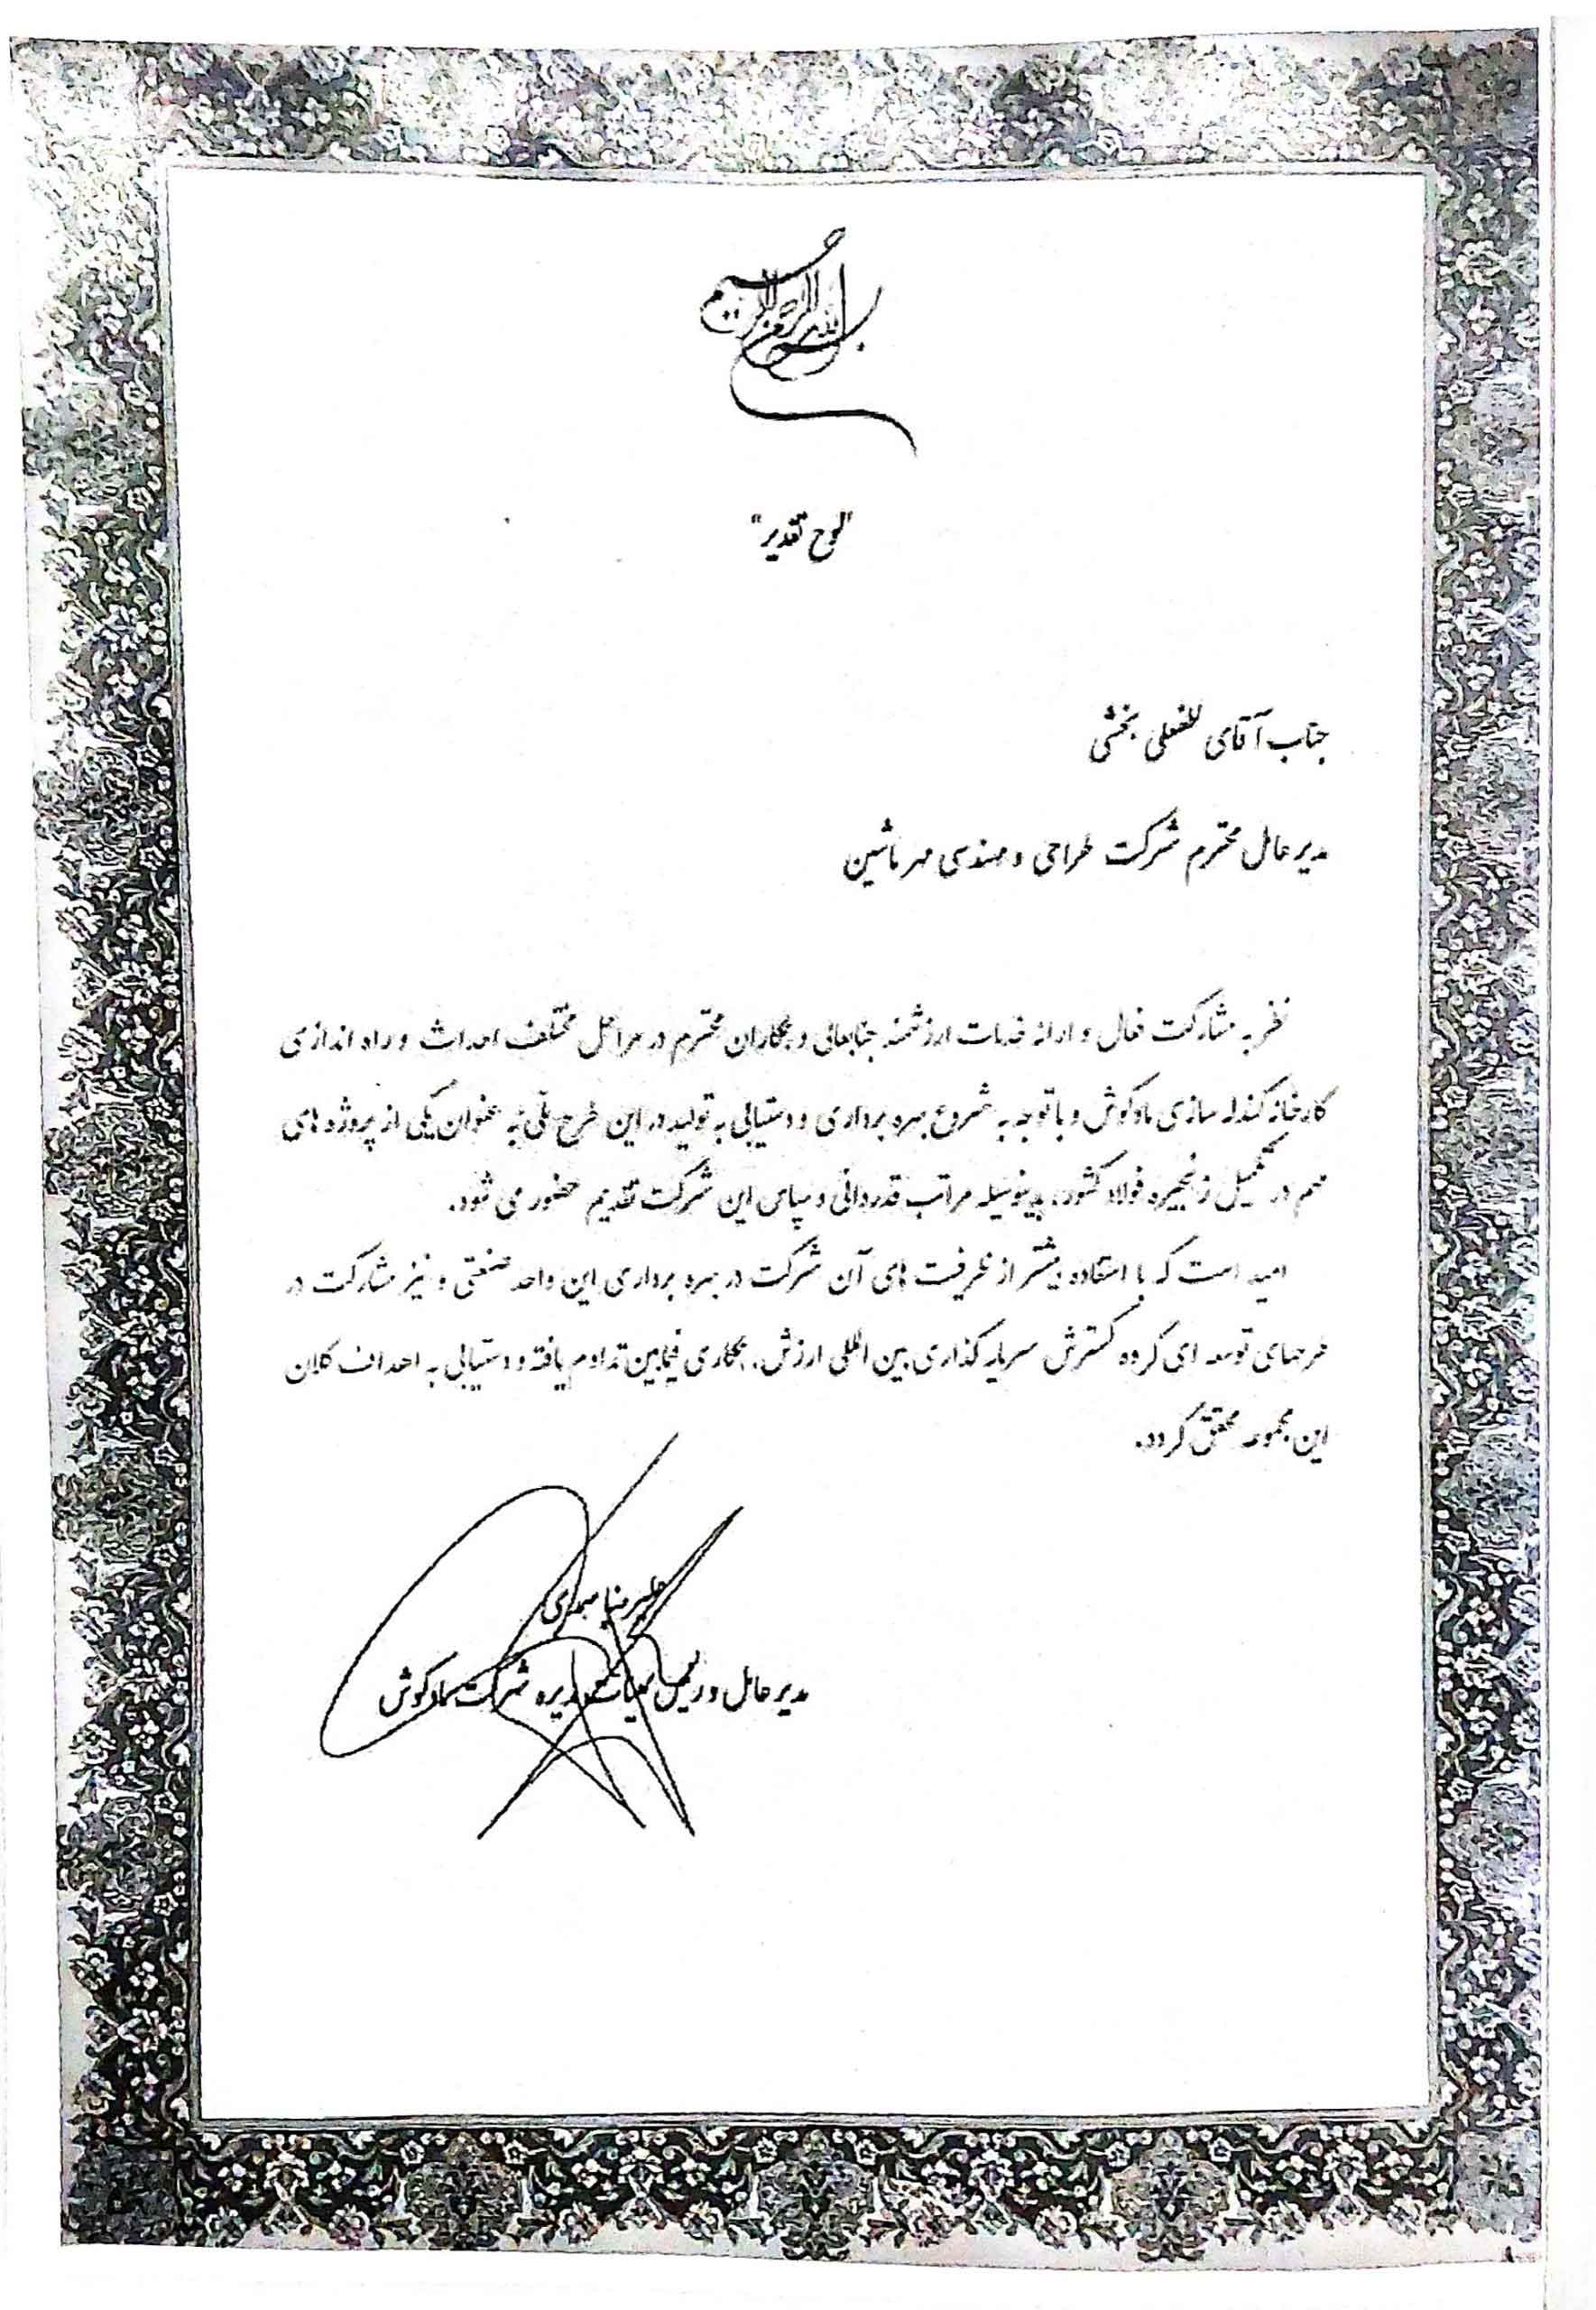 بسم الله الرحمن الرحیم
"لوح تقدیر"
جناب آقای لطفعلی بخشی
مدیر عامل محترم شرکت طراحی و مهندسی مهر ماشین
نظر به مشارکت فعال و ارائه خدمات ارزشمند جنابعالی و همکاران محترم در مراحل مختلف احداث و راه اندازی
کارخانه گندله سازی مادکوش و با توجه به شروع بهره برداری و دستیابی به تولید در این طرح ملی به عنوان یکی از پروژه های
مهم در تکمیل زنجیره فولاد کشور، بدینوسیله مراتب قدردانی و سپاس این شرکت تقدیم حضور می شود.
امید است که با استفاده بیشتر از ظرفیت های آن شرکت در بهره برداری این واحد صنعتی و نیز مشارکت در
طرحهای توسعه ای گروه گسترش سرمایه گذاری بین المللی ارزش، همکاری فیمابین تداوم یافته و دستیابی به اهداف کلان
این مجموعه محقق گردد.
علیرضا
مدیر عامل و رئیس هیات مدیره شرکت مادکوش